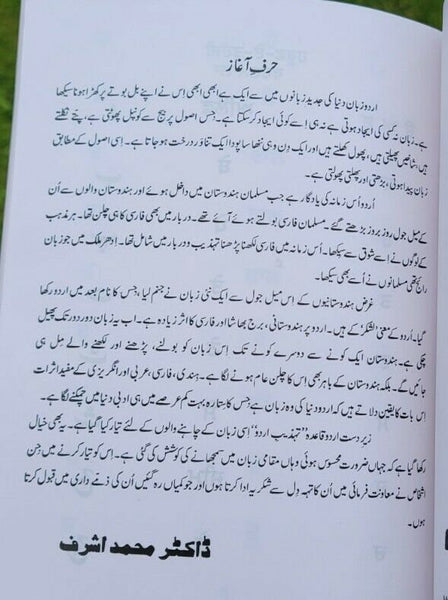 حرفِ آغاز
اردو زبان دنیا کی جدید زبانوں میں سے ایک ہے ابھی ابھی اِس نے اپنے بل بوتے پر کھڑا ہونا سیکھا
ہے۔ زبان نہ کسی کی ایجاد ہوتی ہے نہ ہی اِسے کوئی ایجاد کر سکتا ہے۔ جس اصول پر بیج سے کونپل پھوٹتی ہے، پتّے نکلتے
ہیں، شاخیں پھیلتی ہیں، پھول کھلتے ہیں اور ایک دِن وہی ننھا سا پودا ایک تناور درخت ہو جاتا ہے۔ اِسی اصول کے مطابق
زبان پیدا ہوتی، بڑھتی اور پھلتی پھولتی ہے۔
اُردو اُس زمانہ کی یادگار ہے جب مسلمان ہندوستان میں داخل ہوئے اور ہندوستان والوں سے اُن
کے میل جول روز بروز بڑھتے گئے۔ مسلمان فارسی بولتے ہوئے آئے تھے۔ دربار میں بھی فارسی کا ہی چلن تھا۔ ہر مذہب
کے لوگوں نے اسے شوق سے سیکھا۔ اُس زمانہ میں فارسی لکھنا پڑھنا تہذیب و دربار میں شامل تھا۔ اِدھر ملک میں جو زبان
رائج تھی مسلمانوں نے اُسے بھی سیکھا۔
غرض ہندوستانیوں کے اس میل جول سے ایک نئی زبان نے جنم لیا، جس کا نام بعد میں اردو رکھا
گیا۔ اُردو کے معنی 'لشکر' کے ہیں۔ اردو پر ہندوستانی، برج بھاشا اور فارسی کا اثر زیادہ ہے۔ اب یہ زبان دور دور تک پھیل
چکی ہے۔ ہندوستان ایک کونے سے دوسرے کونے تک اِس زبان کو بولنے، پڑھنے اور لکھنے والے مِل ہی
جائیں گے۔ بلکہ ہندوستان کے باہر بھی اس کا چلن عام ہونے لگا ہے۔ ہندی، فارسی، عربی اور انگریزی کے مفید اثرات
اِس بات کا یقین دلاتے ہیں کہ اردو دنیا کی وہ زبان ہے جِس کا ستارہ بہت کم عرصے میں ہی ادبی دنیا میں چمکنے لگا ہے۔
زیر دست اردو قاعدہ "تہذیب اردو" اِسی زبان کے چاہنے والوں کے لئے تیار کیا گیا ہے۔ یہ بھی خیال
رکھا گیا ہے کہ جہاں ضرورت محسوس ہوئی وہاں مقامی زبان میں سمجھانے کی کوشش کی گئی ہے۔ اِس کو تیار کرنے میں جِن
اشخاص نے معاونت فرمائی میں اُن کا تہہ دِل سے شکریہ ادا کرتا ہوں اور جو کمیاں رہ گئیں اُن کی ذمّے داری میں قبول کرتا
ہوں۔
ڈاکٹر محمد اشرف